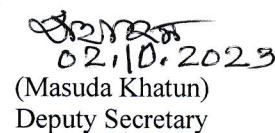 02.10.2023
(Masuda Khatun)
Deputy Secretary